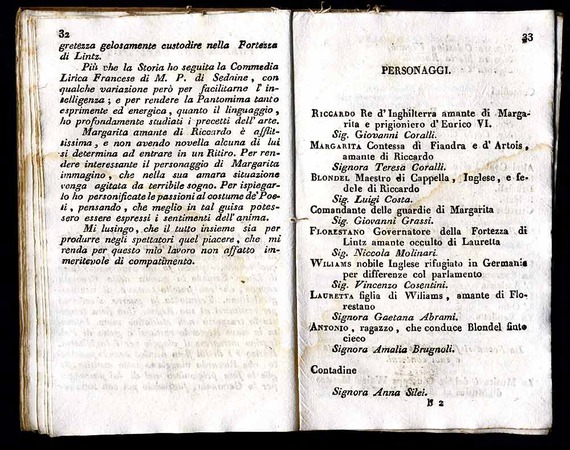 32
gretezza gelosamente custodire nella Fortezza
di Lintz.
Più che la Storia ho seguita la Commedia
Lirica Francese di M. P. di Sedaine, con
qualche variazione però per facilitarne l' in-
telligenza; e per rendere la Pantomima tanto
esprimente ed energica, quanto il linguaggio,
ho profondamente studiati i precetti dell' arte.
Margarita amante di Riccardo è afflit-
tissima, e non avendo novella alcuna di lui
si determina ad entrare in un Ritiro. Per ren-
dere interessante il personaggio di Margarita
immagino, che nella sua amara situazione
venga agitata da terribile sogno. Per ispiegar-
lo ho personificate le passioni al costume de' Poe-
ti, pensando, che meglio in tal guisa potes-
sero essere espressi i sentimenti dell' anima.
Mi lusingo, che il tutto insieme sia per
produrre negli spettatori quel piacere, che mi
renda per questo mio lavoro non affatto im-
meritevole di compatimento.
33
PERSONAGGI.
RICCARDO Re d' Inghilterra amante di Marga-
rita e prigioniero d' Enrico VI.
Sig. Giovanni Coralli.
MARGARITA Contessa di Fiandra e d' Artois,
amante di Riccardo
Signora Teresa Coralli.
BLONDEL Maestro di Cappella, Inglese, e fe-
dele di Riccardo
Sig. Luigi Costa.
Comandante delle guardie di Margarita
Sig. Giovanni Grassi.
FLORESTANO Governatore della Fortezza di
Lintz amante occulto di Lauretta
Sig. Niccola Molinari.
WILIAMS nobile Inglese rifugiato in Germania
per differenze col parlamento
Sig. Vincenzo Cosentini.
LAURETTA figlia di Wiliams, amante di Flo-
restano
Signora Gaetana Abrami.
ANTONIO, ragazzo, che conduce Blondel finto
cieco
Signora Amalia Brugnoli.
Contadine
Signora Anna Silei.
B 2